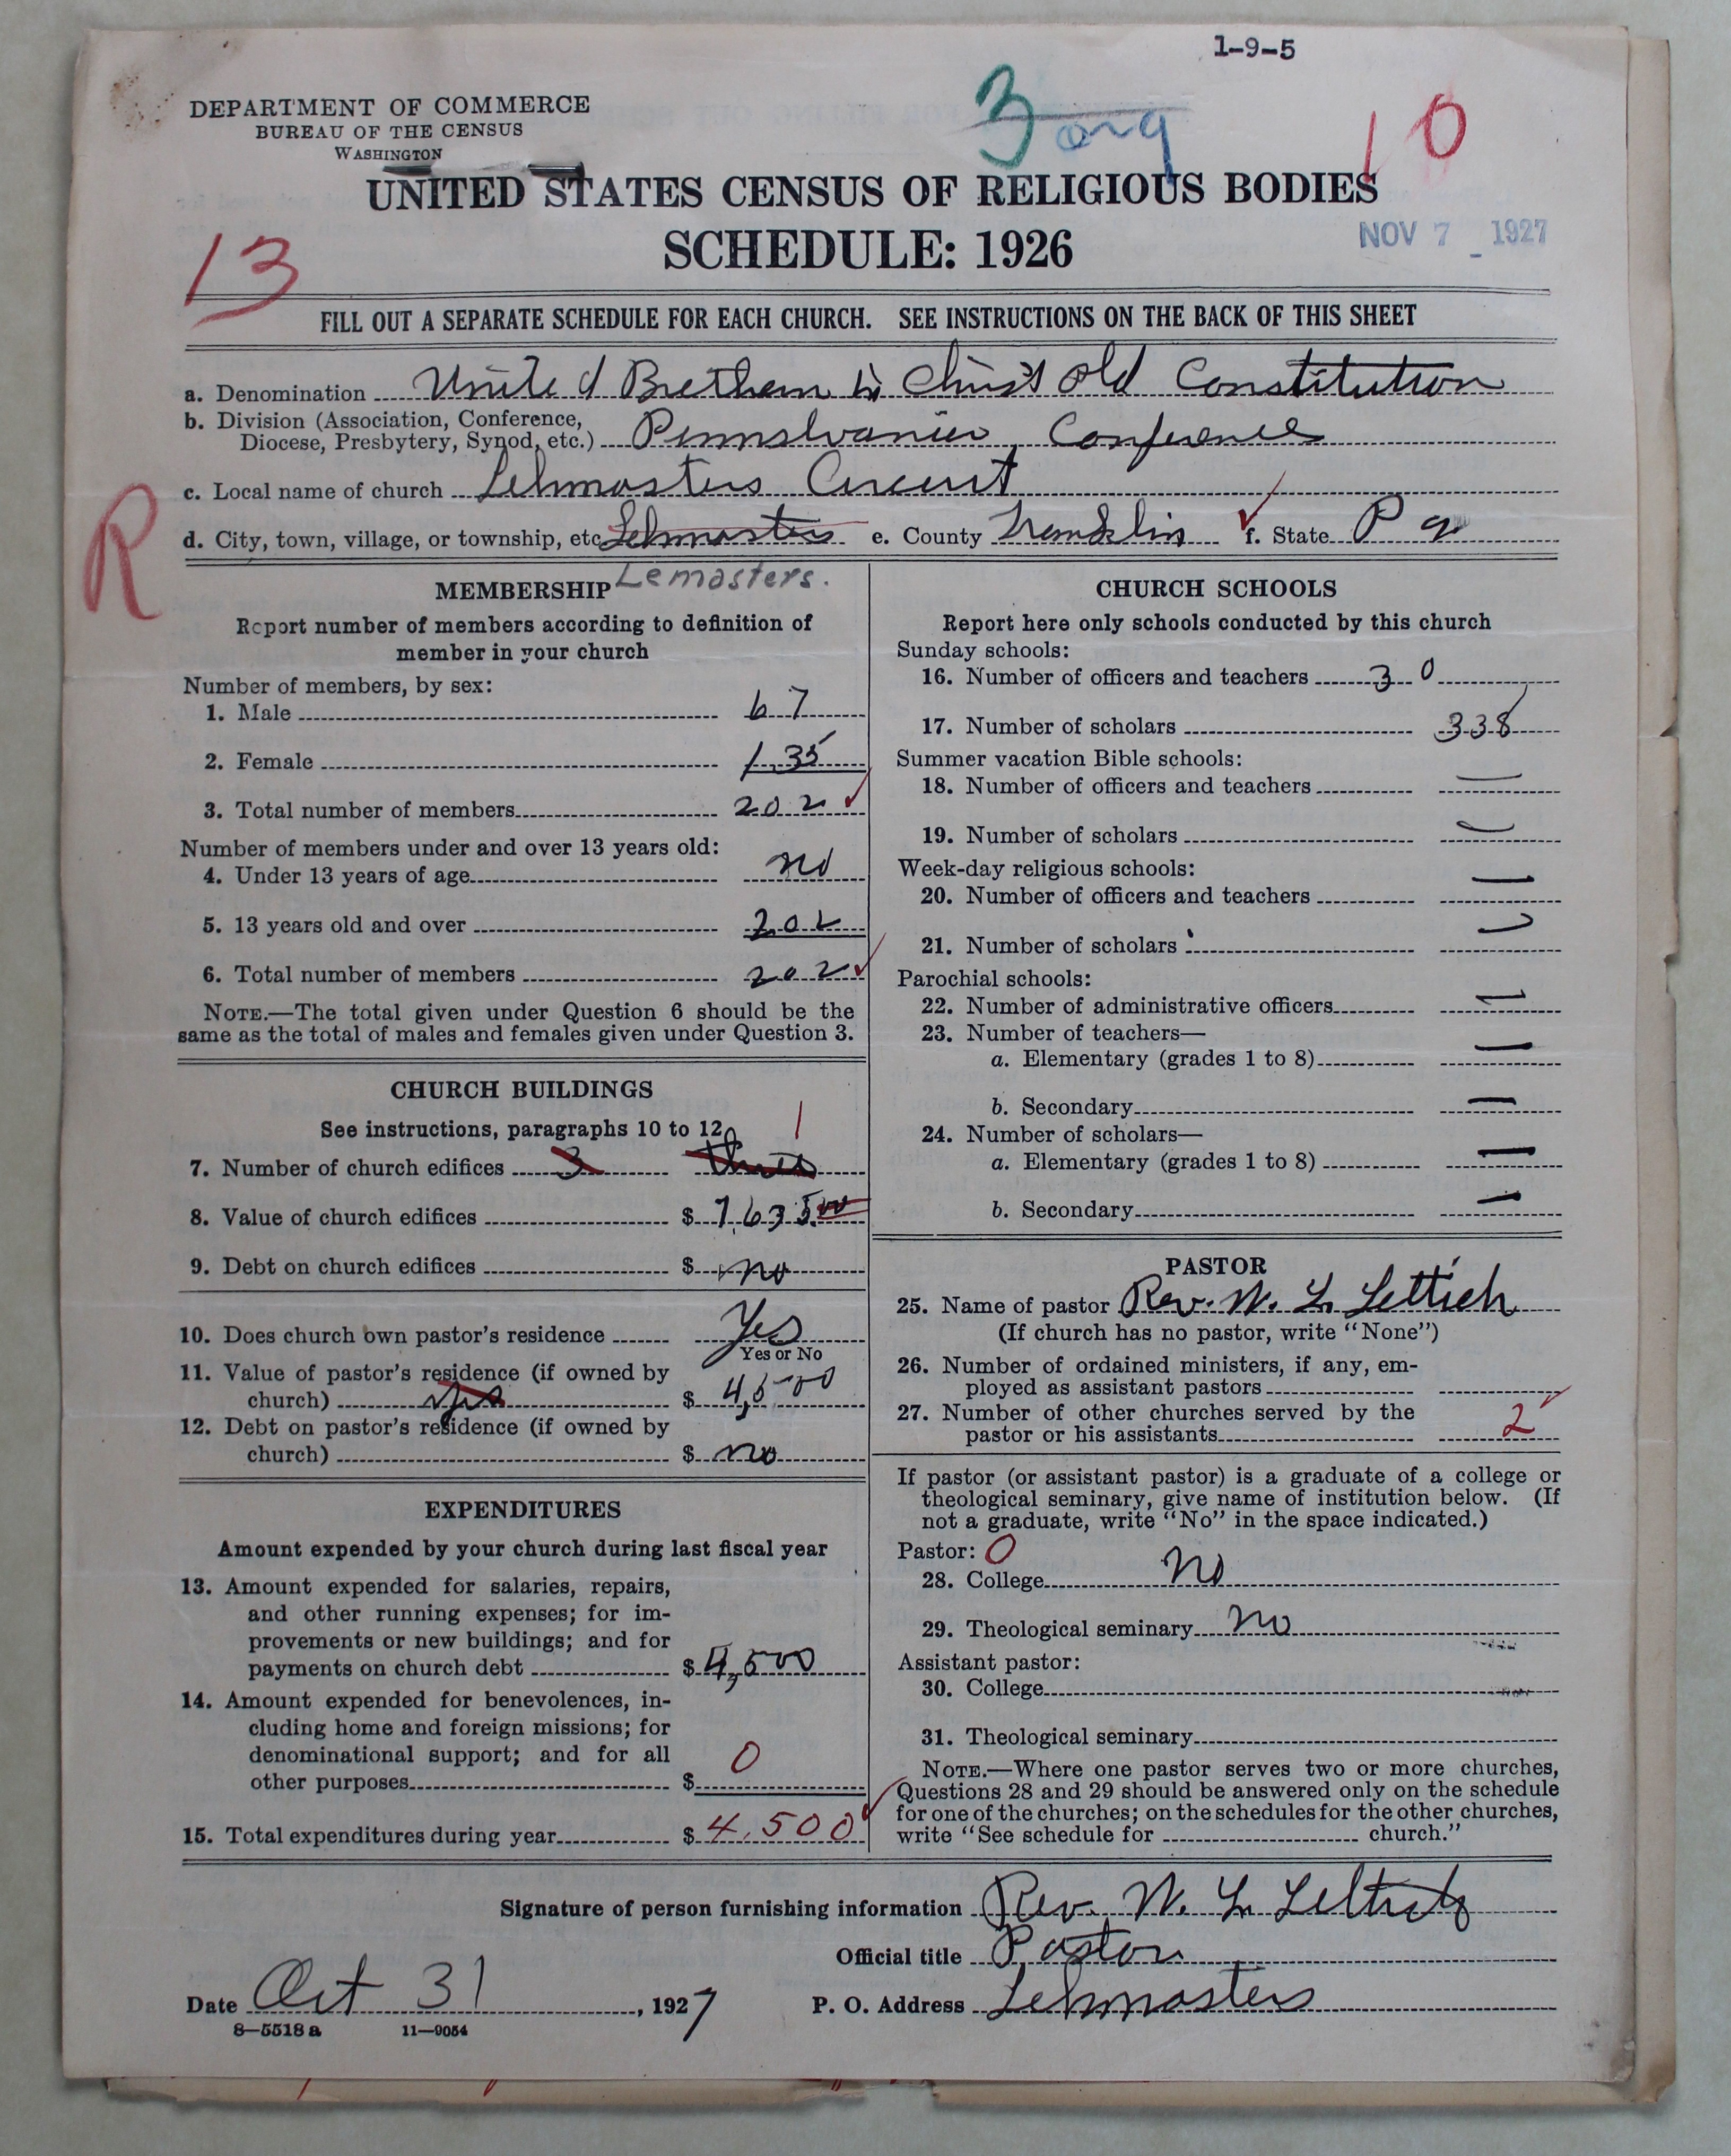 1-9-5
DEPARTMENT OF COMMERCE
BUREAU OF THE CENSUS
WASHINGTON
3 org
10
UNITED STATES CENSUS OF RELIGIOUS BODIES
SCHEDULE: 1926
NOV 7 1927
13
FILL OUT A SEPARATE SCHEDULE FOR EACH CHURCH. SEE INSTRUCTIONS ON THE BACK OF THIS SHEET
a. Denomination United Brethern in Christ Old Constitution
b. Division (Association, Conference,
Diocese, Presbytery, Synod, etc.) Pennslvania Conference
c. Local name of church Lehmasters Circuit
R
d. City, town, village, or township, etc. Lehmasters e. County Franklin f. State Pa
Lemasters.
MEMBERSHIP
Report number of members according to definition of
member in your church
Number of members, by sex:
1. Male 67
2. Female 135
3. Total number of members 202
Number of members under and over 13 years old:
4. Under 13 years of age no
5. 13 years old and over 202
6. Total number of members 202
NOTE.—The total given under Question 6 should be the
same as the total of males and females given under Question 3.
CHURCH BUILDINGS
See instructions, paragraphs 10 to 12
1
7. Number of church edifices 3 three
8. Value of church edifices $ 7,635.00
9. Debt on church edifices $ no
10. Does church own pastor's residence Yes
Yes or No
11. Value of pastor's residence (if owned by
church) yes $ 4,500
12. Debt on pastor's residence (if owned by
church) $ no
EXPENDITURES
Amount expended by your church during last fiscal year
13. Amount expended for salaries, repairs,
and other running expenses; for im-
provements or new buildings; and for
payments on church debt $ 4,500
14. Amount expended for benevolences, in-
cluding home and foreign missions; for
denominational support; and for all
other purposes $ 0
15. Total expenditures during year $ 4,500
CHURCH SCHOOLS
Report here only schools conducted by this church
Sunday schools:
16. Number of officers and teachers 30
17. Number of scholars 338
Summer vacation Bible schools:
18. Number of officers and teachers —
19. Number of scholars —
Week-day religious schools:
20. Number of officers and teachers —
21. Number of scholars —
Parochial schools:
22. Number of administrative officers —
23. Number of teachers—
a. Elementary (grades 1 to 8) —
b. Secondary —
24. Number of scholars—
a. Elementary (grades 1 to 8) —
b. Secondary —
PASTOR
25. Name of pastor Rev. W. L. Lettich
(If church has no pastor, write "None")
26. Number of ordained ministers, if any, em-
ployed as assistant pastors
27. Number of other churches served by the
pastor or his assistants 2
If pastor (or assistant pastor) is a graduate of a college or
theological seminary, give name of institution below. (If
not a graduate, write "No" in the space indicated.)
Pastor: 0
28. College no
29. Theological seminary no
Assistant pastor:
30. College
31. Theological seminary
NOTE.—Where one pastor serves two or more churches,
Questions 28 and 29 should be answered only on the schedule
for one of the churches; on the schedules for the other churches,
write "See schedule for church."
Signature of person furnishing information Rev. W. L. Lettich
Official title Pastor
Date Oct 31, 1927 P. O. Address Lehmasters
8—5518 a 11—9054